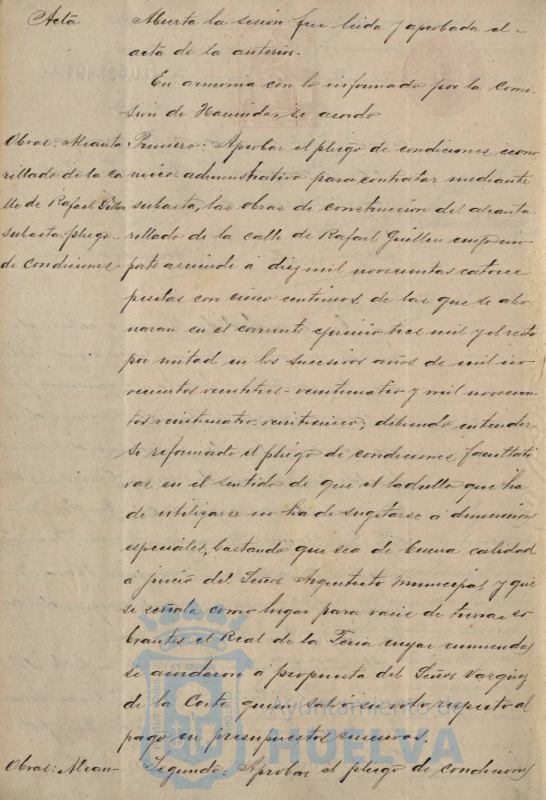 Acta
Abierta la sesión fue leida y aprobada el
acta de la anterior.
En armonia con lo informado por la Comi
sion de Hacienda, se acordó
Obras: Alcanta
rillado de la ca
lle de Rafael Guillen
subasta: pliego
de condiciones
Primero: Aprobar el pliego de condiciones econo
mico administrativo para contratar mediante
subasta, las obras de construccion del alcanta
rillado de la calle de Rafael Guillen cuyo im
porte asciende á diez mil novecientas catorce
pesetas con cinco centimos de las que se abo
naran en el corriente ejercicio tres mil y el resto
por mitad en los sucesivos años de mil no
vecientos veintitres-veinticuatro y mil novecien
tos veinticuatro-veinticinco, debiendo entender
se reformado el pliego de condiciones facultati
vas en el sentido de que el ladrillo que ha
de utilizarse no ha de sugetarse á dimensiones
especiales, bastando que sea de buena calidad
á juicio del Señor Arquitecto municipal y que
se señala como lugar para vacie de tierras so
brantes el Real de la Feria cuyas enmiendas
se acordaron á propuesta del Señor Vazquez
de la Corte quien salvó su voto respecto al
pago en presupuestos sucesivos.
Obras: Alcan-
Segundo: Aprobar el pliego de condiciones
Ayuntamiento de
HUELVA